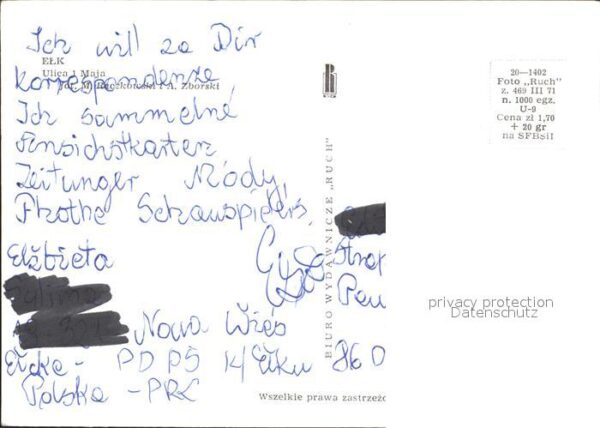 Ich will za Dir
EŁK
Ulica 1 Maja
Korrespondenze,
Fot. A. Zborski
Ich sammelné
Ansichstkarter
Zeitunger Módy,
Phothe Schauspielers.
Elżbieta
Nowa Wieś
Ełcka - PDPS K/Ełku
Polska - PRL
BIURO WYDAWNICZE „RUCH"
Wszelkie prawa zastrzeżo
20—1402
Foto „Ruch"
z. 469 III 71
n. 1000 egz.
U-9
Cena zł 1,70
+ 20 gr
na SFBSiI
privacy protection
Datenschutz